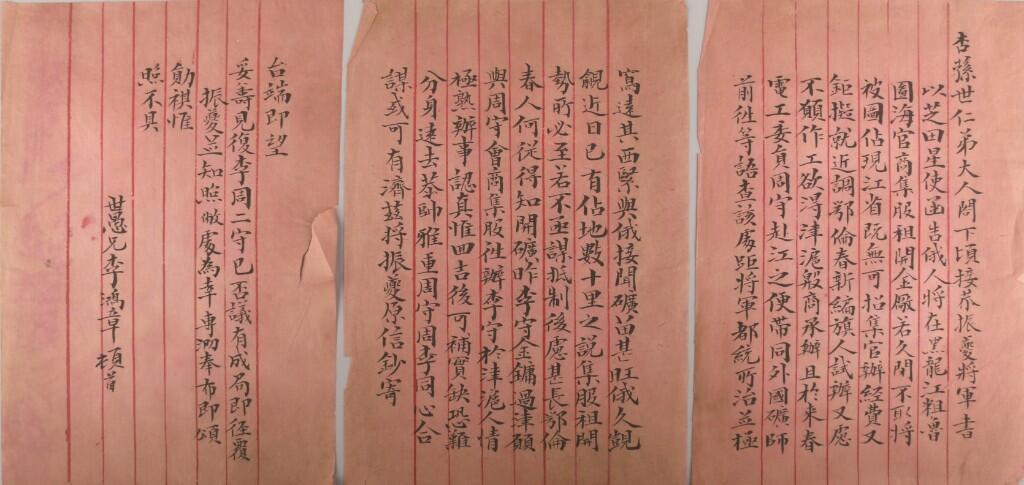 杏孫世仁弟大人閣下頃接恭振夔將軍書
以芝田星使函告俄人將在黑龍江粗魯
圖海官商集股租開金廠若久閒不取將
被圖佔現江省既無可招集官辦經費又
鉅擬就近調鄂倫春新編旗人試辦又慮
不願作工欲淂津滬殷商承辦且於來春
電工委員周守赴江之便帶同外國礦師
前往等語查該處距將軍都統所治並極
窵遠其西緊與俄接聞礦苗甚旺俄久覬
覦近日已有佔地數十里之說集股租開
勢所必至若不亟謀抵制後慮甚長鄂倫
春人何從得知開礦昨李守金鏞過津願
與周守會商集股往辦李守於津滬人情
極熟辦事認真惟回吉後可補實缺恐難
分身遠去恭帥雅重周守周李同心合
謀或可有濟茲將振夔原信鈔寄
台端即望
妥籌見復李周二守已否議有成局即徑覆
振夔並知照敝處為幸專泐奉布即頌
勛祺惟
照不具
世愚兄李鴻章頓首